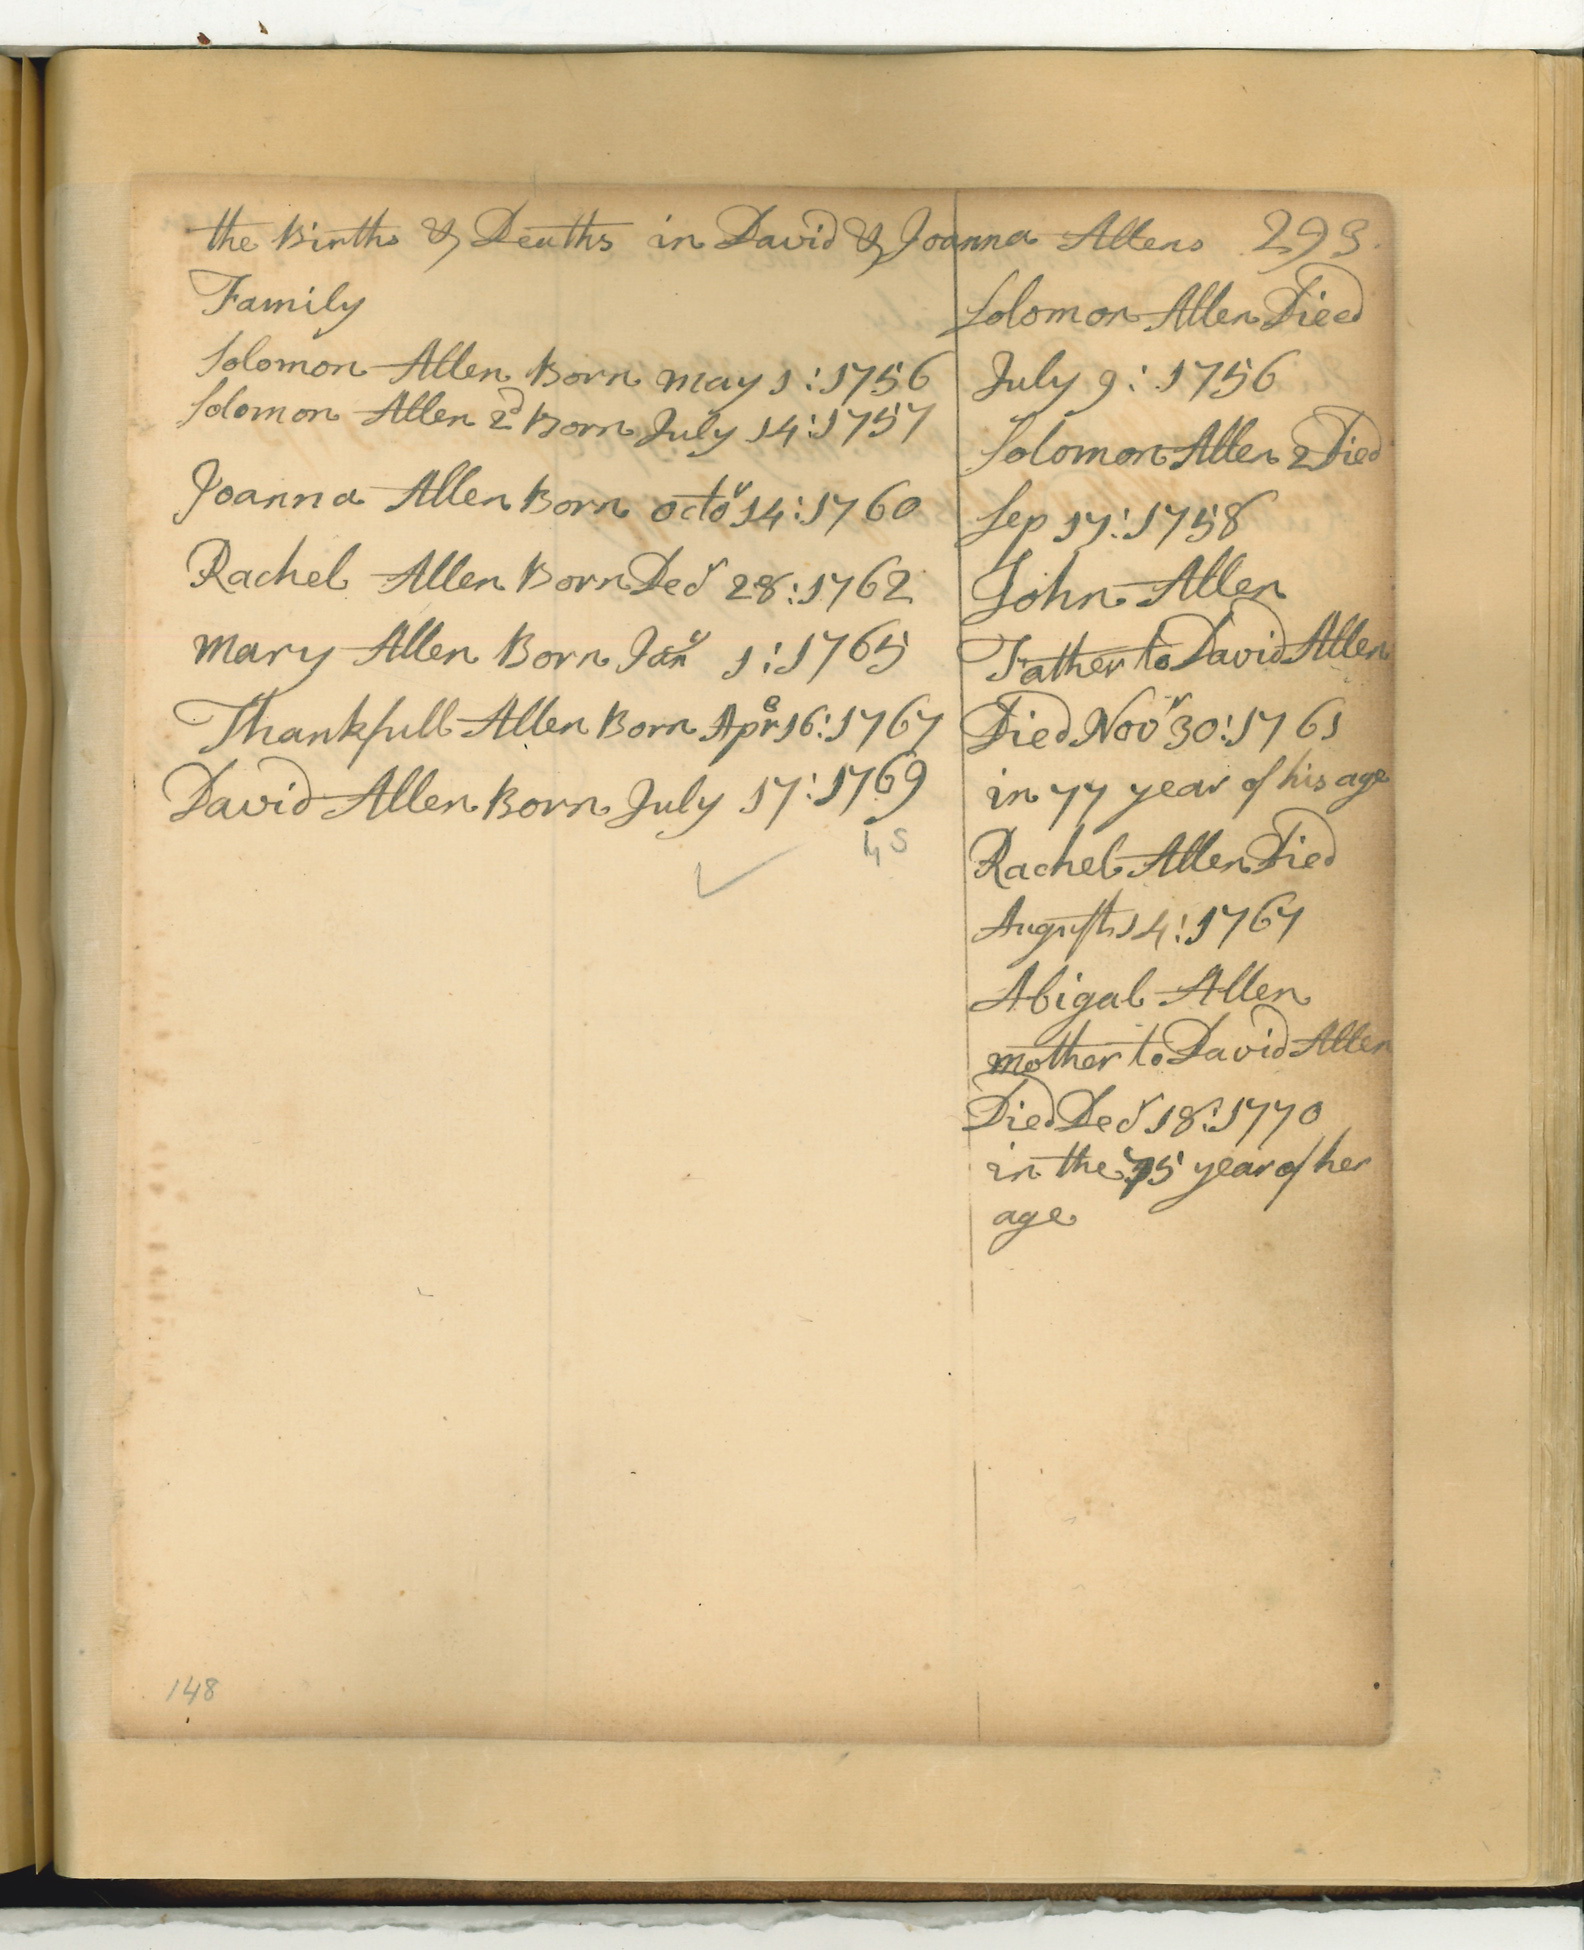 the Births & Deaths in David & Joanna Allens 293.
Family
Solomon Allen Born may 1: 1756
Solomon Allen 2d Born July 14: 1757
Joanna Allen Born octor 14: 1760
Rachel Allen Born Decr 28: 1762
Mary Allen Born Janr 1: 1765
Thankfull Allen Born Apre 16: 1767
David Allen Born July 17: 1769
148
Solomon Allen Died
July 9: 1756
Solomon Allen 2 Died
Sep 17: 1758
John Allen
Father to David Allen
Died Novr 30: 1761
in 77 year of his age
Rachel Allen Died
August 14: 1767
Abigal Allen
mother to David Allen
Died Decr 18: 1770
in the 75 year of her
age